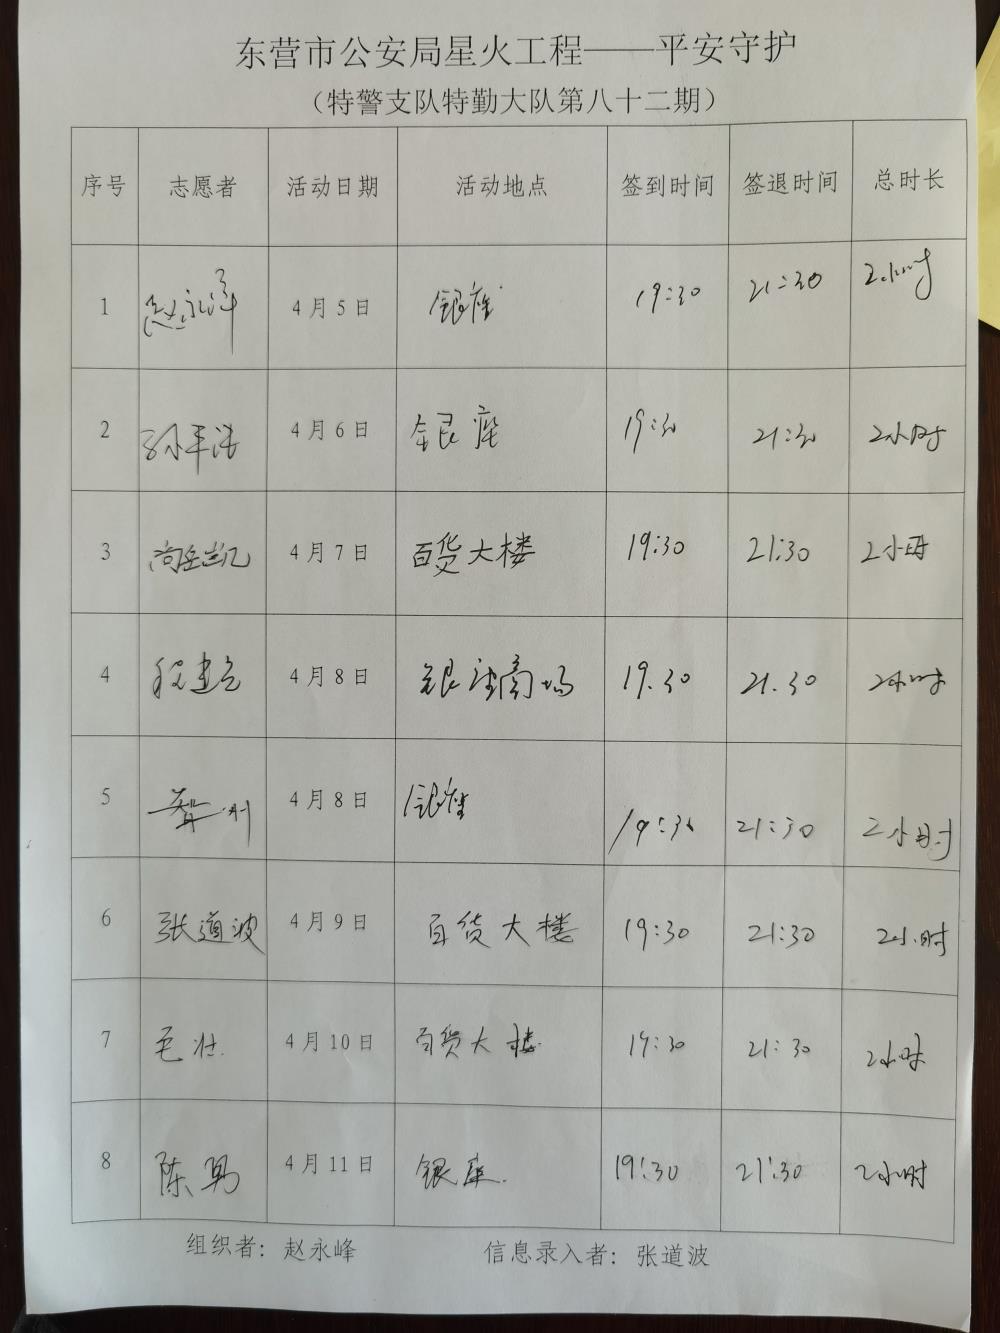 东营市公安局星火工程——平安守护
（特警支队特勤大队第八十二期）
序号 志愿者 活动日期 活动地点 签到时间 签退时间 总时长
1 赵永峰 4月5日 银座 19:30 21:30 2小时
2 孙平浩 4月6日 银座 19:30 21:30 2小时
3 尚岳凯 4月7日 百货大楼 19:30 21:30 2小时
4 程建 4月8日 银座商场 19.30 21.30 2小时
5 4月8日 银座 19:30 21:30 2小时
6 张道波 4月9日 百货大楼 19:30 21:30 2小时
7 毛壮 4月10日 百货大楼 19:30 21:30 2小时
8 陈勇 4月11日 银座 19:30 21:30 2小时
组织者：赵永峰 信息录入者：张道波